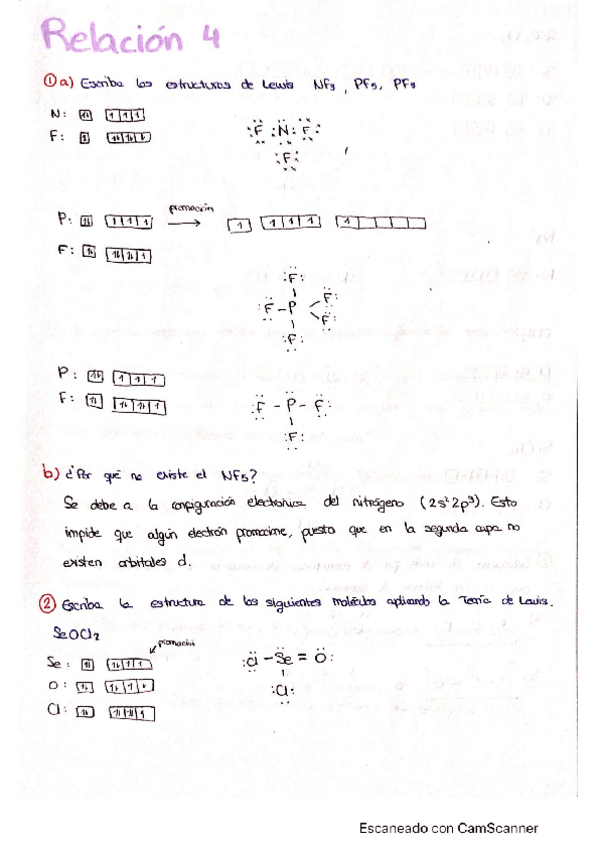 Relación 4
① a) Escriba las estructuras de Lewis NF3, PF5, PF3
N: ⥮ 1 1 1
F: ⥮ ⥮ ⥮ 1
:F : N : F:
:F:
P: ⥮ 1 1 1 promoción → 1 1 1 1 1
F: ⥮ ⥮ ⥮ 1
:F:
:F - P F:
F:
:F:
P: ⥮ 1 1 1
F: ⥮ ⥮ ⥮ 1
:F - P - F:
:F:
b) ¿Por qué no existe el NF5?
Se debe a la configuración electrónica del nitrógeno (2s² 2p³). Esto
impide que algún electrón promocione, puesto que en la segunda capa no
existen orbitales d.
② Escriba la estructura de los siguientes moléculas aplicando la Teoría de Lewis.
SeOCl2
promoción
Se: ⥮ ⥮ 1 1
O: ⥮ ⥮ 1 1
Cl: ⥮ ⥮ ⥮ 1
:Cl - Se = O:
:Cl:
Escaneado con CamScanner